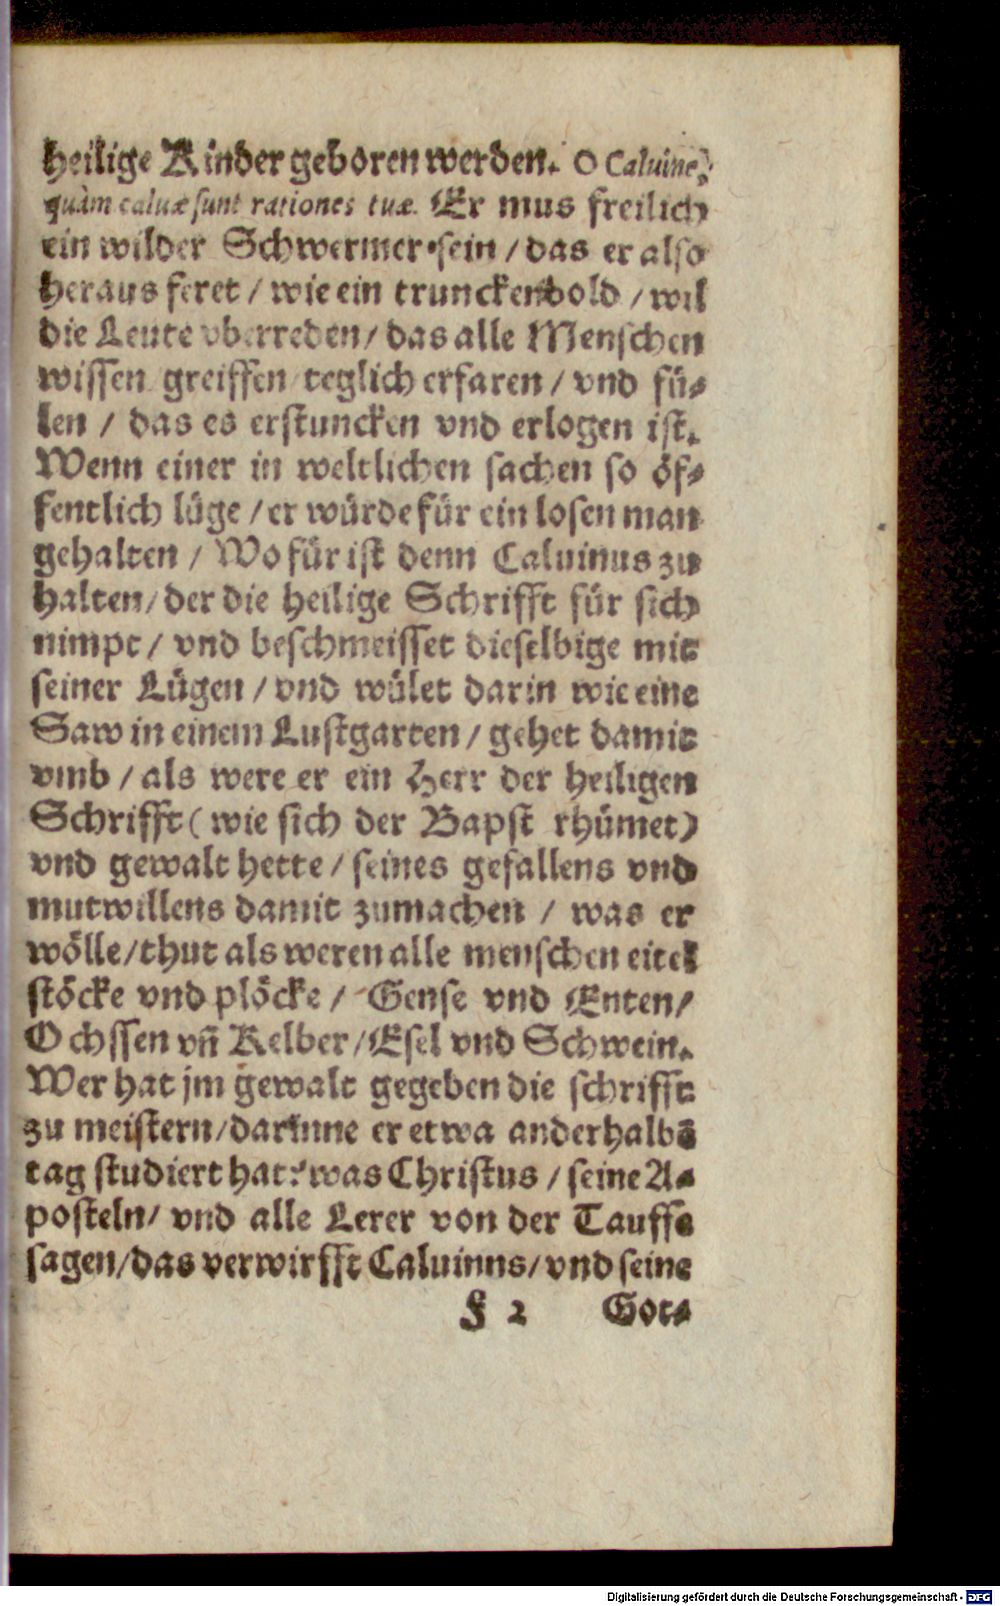 heilige Kinder geboren werden. O Caluine,
quàm caluæ sunt rationes tuæ. Er mus freilich
ein wilder Schwermer sein / das er also
heraus feret / wie ein trunckenbold / wil
die Leute vberreden / das alle Menschen
wissen greiffen teglich erfaren / vnd fü⸗
len / das es erstuncken vnd erlogen ist.
Wenn einer in weltlichen sachen so öf⸗
fentlich lüge / er würde für ein losen man
gehalten / Wo für ist denn Caluinus zu
halten / der die heilige Schrifft für sich
nimpt / vnd beschmeisset dieselbige mit
seiner Lügen / vnd wület darin wie eine
Saw in einem Lustgarten / gehet damit
vmb / als were er ein Herr der heiligen
Schrifft ( wie sich der Bapst rhümet )
vnd gewalt hette / seines gefallens vnd
mutwillens damit zumachen / was er
wölle / thut als weren alle menschen eitel
stöcke vnd plöcke / Gense vnd Enten /
Ochssen vn̄ Kelber / Esel vnd Schwein.
Wer hat jm gewalt gegeben die schrifft
zu meistern / darinne er etwa anderhalbē
tag studiert hat? was Christus / seine A⸗
posteln / vnd alle Lerer von der Tauffe
sagen / das verwirfft Caluinns / vnd seine
F 2 Got⸗
Digitalisierung gefördert durch die Deutsche Forschungsgemeinschaft - DFG